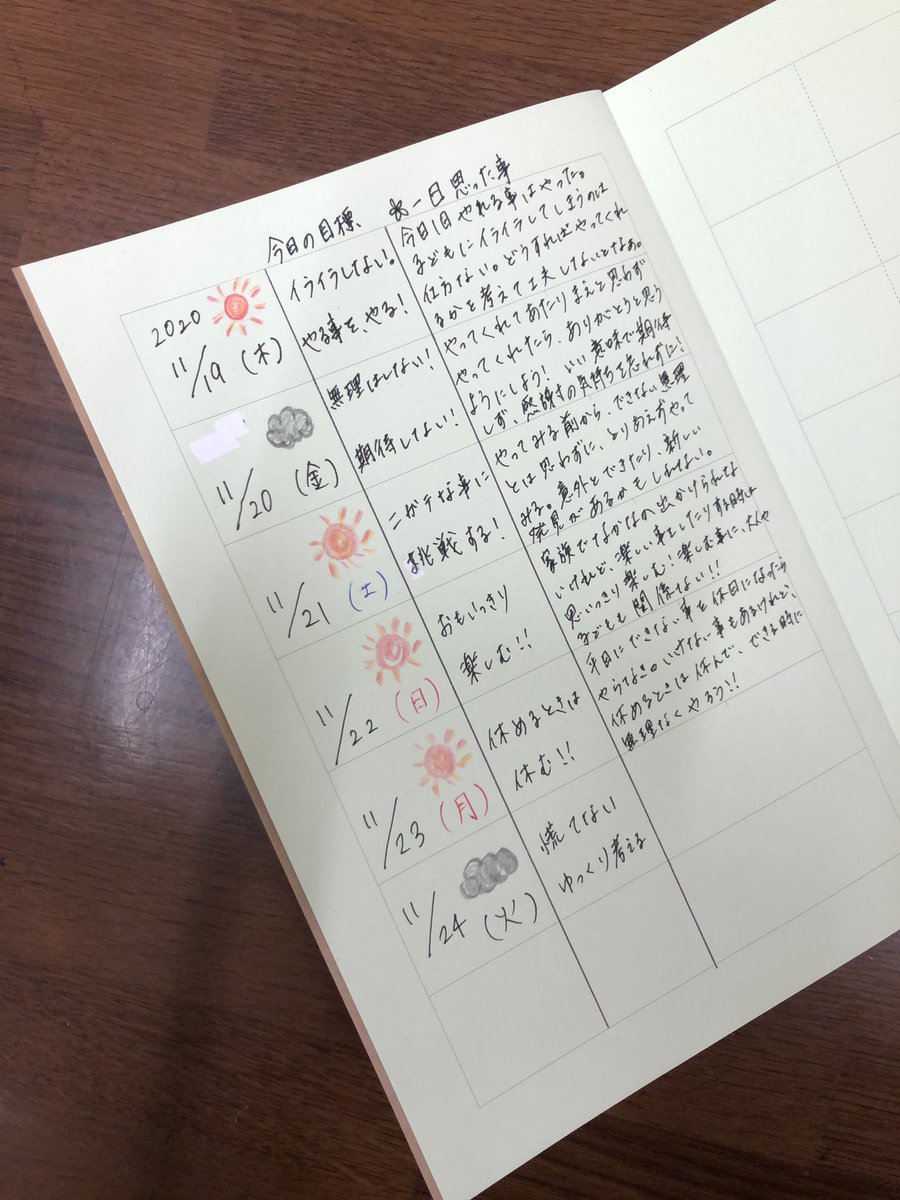 今日の目標 ☆一日思った事
2020
11/19 (木)
イライラしない。
やる事を、やる!
今日1日やれる事はやった。
子どもにイライラしてしまうのは
仕方ない。どうすればやってくれ
るかを考えて工夫しないとなぁ。
11/20 (金)
無理はしない!
期待してない!
やってくれてあたりまえと思わず
やってくれたら、ありがとうと思う
ようにしよう! いい意味で期待
しず、感謝の気持ちを忘れずに!
11/21 (土)
ニガテな事に
挑戦する!
やってみる前から、できない無理
とは思わずに、とりあえずやって
みる。意外とできたり、新しい
発見があるかもしれない。
11/22 (日)
おもいっきり
楽しむ!!
家族でなかなか出かけられな
いけれど、楽しい事をしたりする時は
思いっきり楽しむ! 楽しむ事に、大人や
子どもも関係ない!!
11/23 (月)
休めるときは
休む!!
平日にできない事を休日になったら
やらなきゃいけない事もあるけれど、
休めるときは休んで、できる時に
無理なくやろう!!
11/24 (火)
慌てない
ゆっくり考える